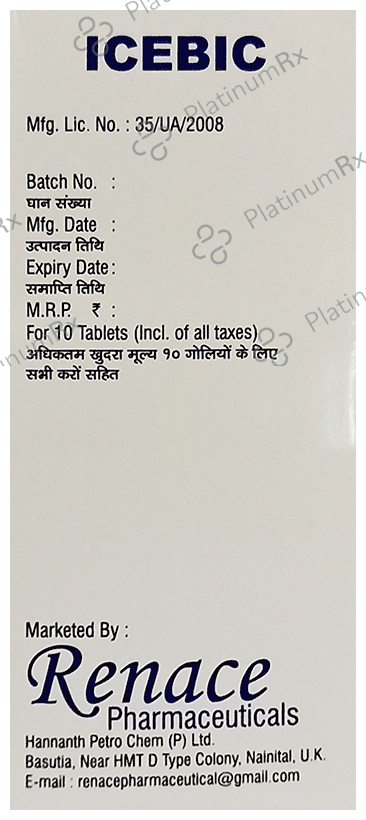 ICEBIC
Mfg. Lic. No. : 35/UA/2008
Batch No. :
घान संख्या
Mfg. Date :
उत्पादन तिथि
Expiry Date:
समाप्ति तिथि
M.R.P. ₹ :
For 10 Tablets (Incl. of all taxes)
अधिकतम खुदरा मूल्य १० गोलियों के लिए
सभी करों सहित
Marketed By :
Renace
Pharmaceuticals
Hannanth Petro Chem (P) Ltd.
Basutia, Near HMT D Type Colony, Nainital, U.K.
E-mail : renacepharmaceutical@gmail.com
PlatinumRx
PlatinumRx
PlatinumRx